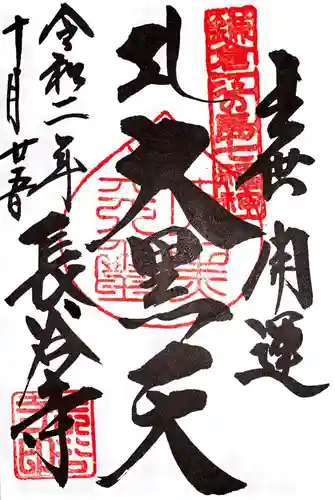 出世開運
大黒天
令和二年
十月廿五日
長谷寺
鎌倉江の島七福神